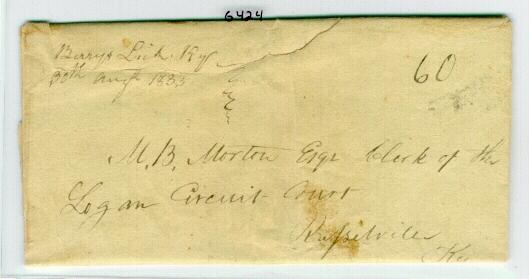 6424
Berrys Lick Ky
30th Augt 1833
60
M. B. Morton Esqr Clerk of the
Logan Circuit Court
Russelville
Ky